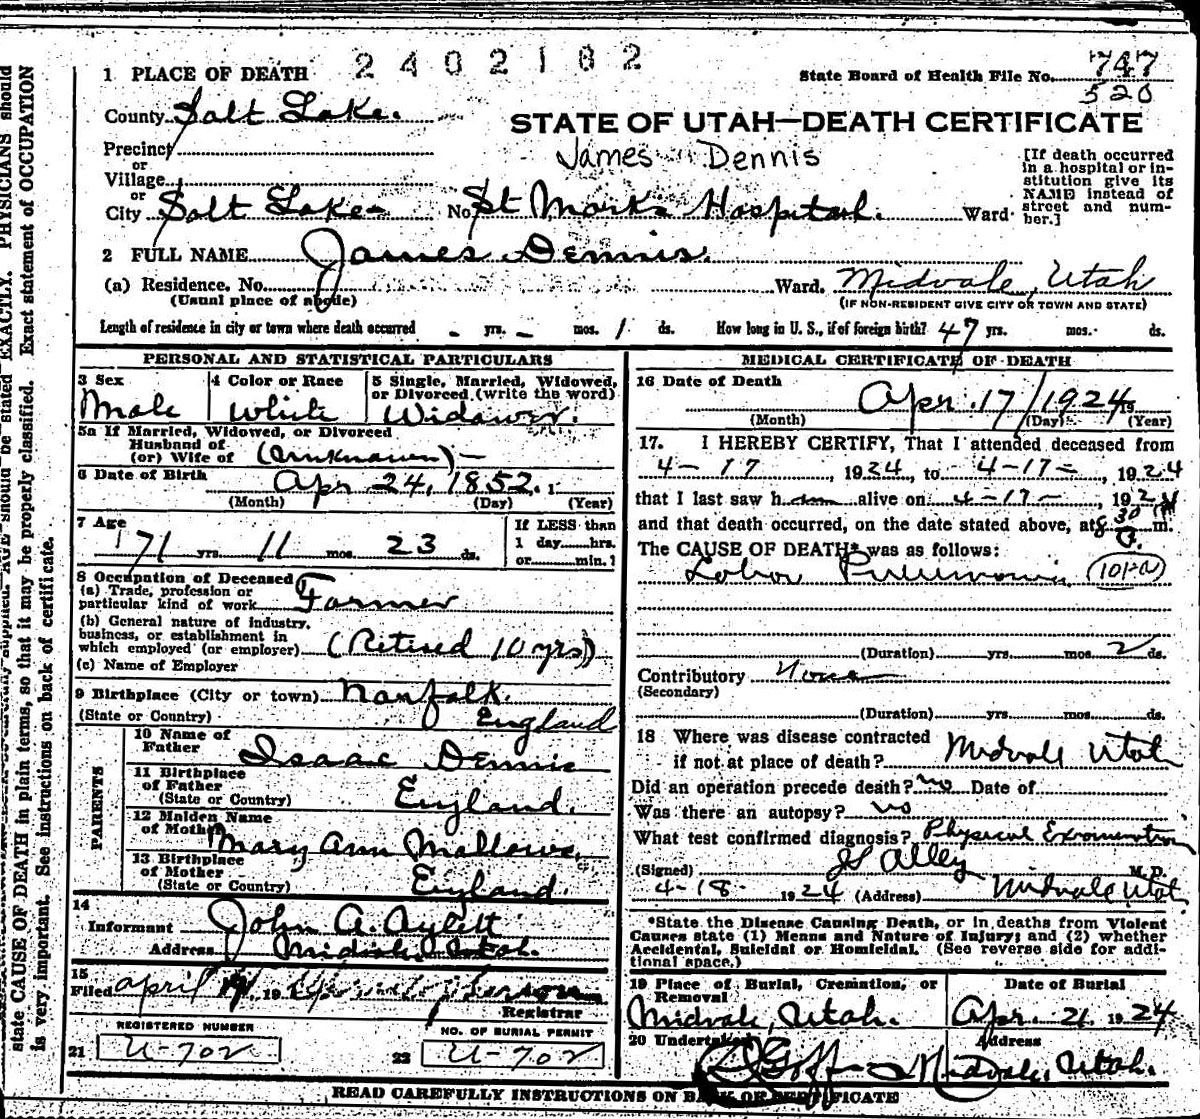 2402182
State Board of Health File No. 747
520
1 PLACE OF DEATH
County Salt Lake.
STATE OF UTAH—DEATH CERTIFICATE
James Dennis
Precinct
or
Village
or
City Salt Lake No. St Mark's Hospital. Ward
[If death occurred in a hospital or institution give its NAME instead of street and number.]
2 FULL NAME James Dennis.
(a) Residence. No. Ward. Midvale, Utah
(Usual place of abode) (IF NON-RESIDENT GIVE CITY OR TOWN AND STATE)
Length of residence in city or town where death occurred - yrs. - mos. 1 ds. How long in U. S., if of foreign birth? 47 yrs. mos. ds.
PERSONAL AND STATISTICAL PARTICULARS
3 Sex
Male
4 Color or Race
White
5 Single, Married, Widowed, or Divorced (write the word)
Widower.
5a If Married, Widowed, or Divorced
Husband of
(or) Wife of (Unknown) -
6 Date of Birth Apr 24, 1852. 1
(Month) (Day) (Year)
7 Age
71 yrs. 11 mos. 23 ds.
If LESS than
1 day......hrs.
or......min.?
8 Occupation of Deceased
(a) Trade, profession or
particular kind of work Farmer
(b) General nature of industry,
business, or establishment in
which employed (or employer) (Retired 10 yrs)
(c) Name of Employer
9 Birthplace (City or town) Nanfolk.
(State or Country) England
PARENTS
10 Name of
Father Isaac Dennis
11 Birthplace
of Father England.
(State or Country)
12 Maiden Name
of Mother Mary Ann Mallows,
13 Birthplace
of Mother England.
(State or Country)
14
Informant John A. Aylett
Address Midvale, Utah.
15
Filed april 19, 19
Registrar
REGISTERED NUMBER
21 U-702
NO. OF BURIAL PERMIT
22 U-702
MEDICAL CERTIFICATE OF DEATH
16 Date of Death
Apr. 17/1924 19
(Month) (Day) (Year)
17. I HEREBY CERTIFY, That I attended deceased from
4-17, 1924, to 4-17-, 1924
that I last saw him alive on 4-17-, 1924
and that death occurred, on the date stated above, at 8 30 P. m.
The CAUSE OF DEATH* was as follows:
Lobar Pneumonia (101-a)
(Duration) yrs. mos. 2 ds.
Contributory None
(Secondary)
(Duration) yrs. mos. ds.
18 Where was disease contracted
if not at place of death? Midvale Utah
Did an operation precede death? no Date of
Was there an autopsy? no
What test confirmed diagnosis? Physical Examination
(Signed) Alley M.D.
4-18- 1924 (Address) Midvale Utah
*State the Disease Causing Death, or in deaths from Violent
Causes state (1) Means and Nature of Injury; and (2) whether
Accidental, Suicidal or Homicidal. (See reverse side for addi-
tional space.)
19 Place of Burial, Cremation, or
Removal
Midvale, Utah.
Date of Burial
Apr. 21. 1924
20 Undertaker Goff
Address
Midvale, Utah.
READ CAREFULLY INSTRUCTIONS ON BACK OF CERTIFICATE
EXACTLY. PHYSICIANS should
Exact statement of OCCUPATION
state CAUSE OF DEATH in plain terms, so that it may be properly classified.
is very important. See instructions on back of certificate.